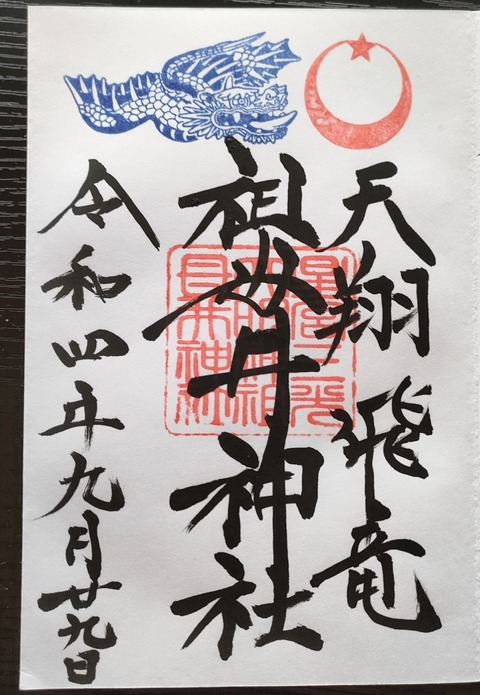 天翔飛竜
祖母井神社
令和四年九月廿九日